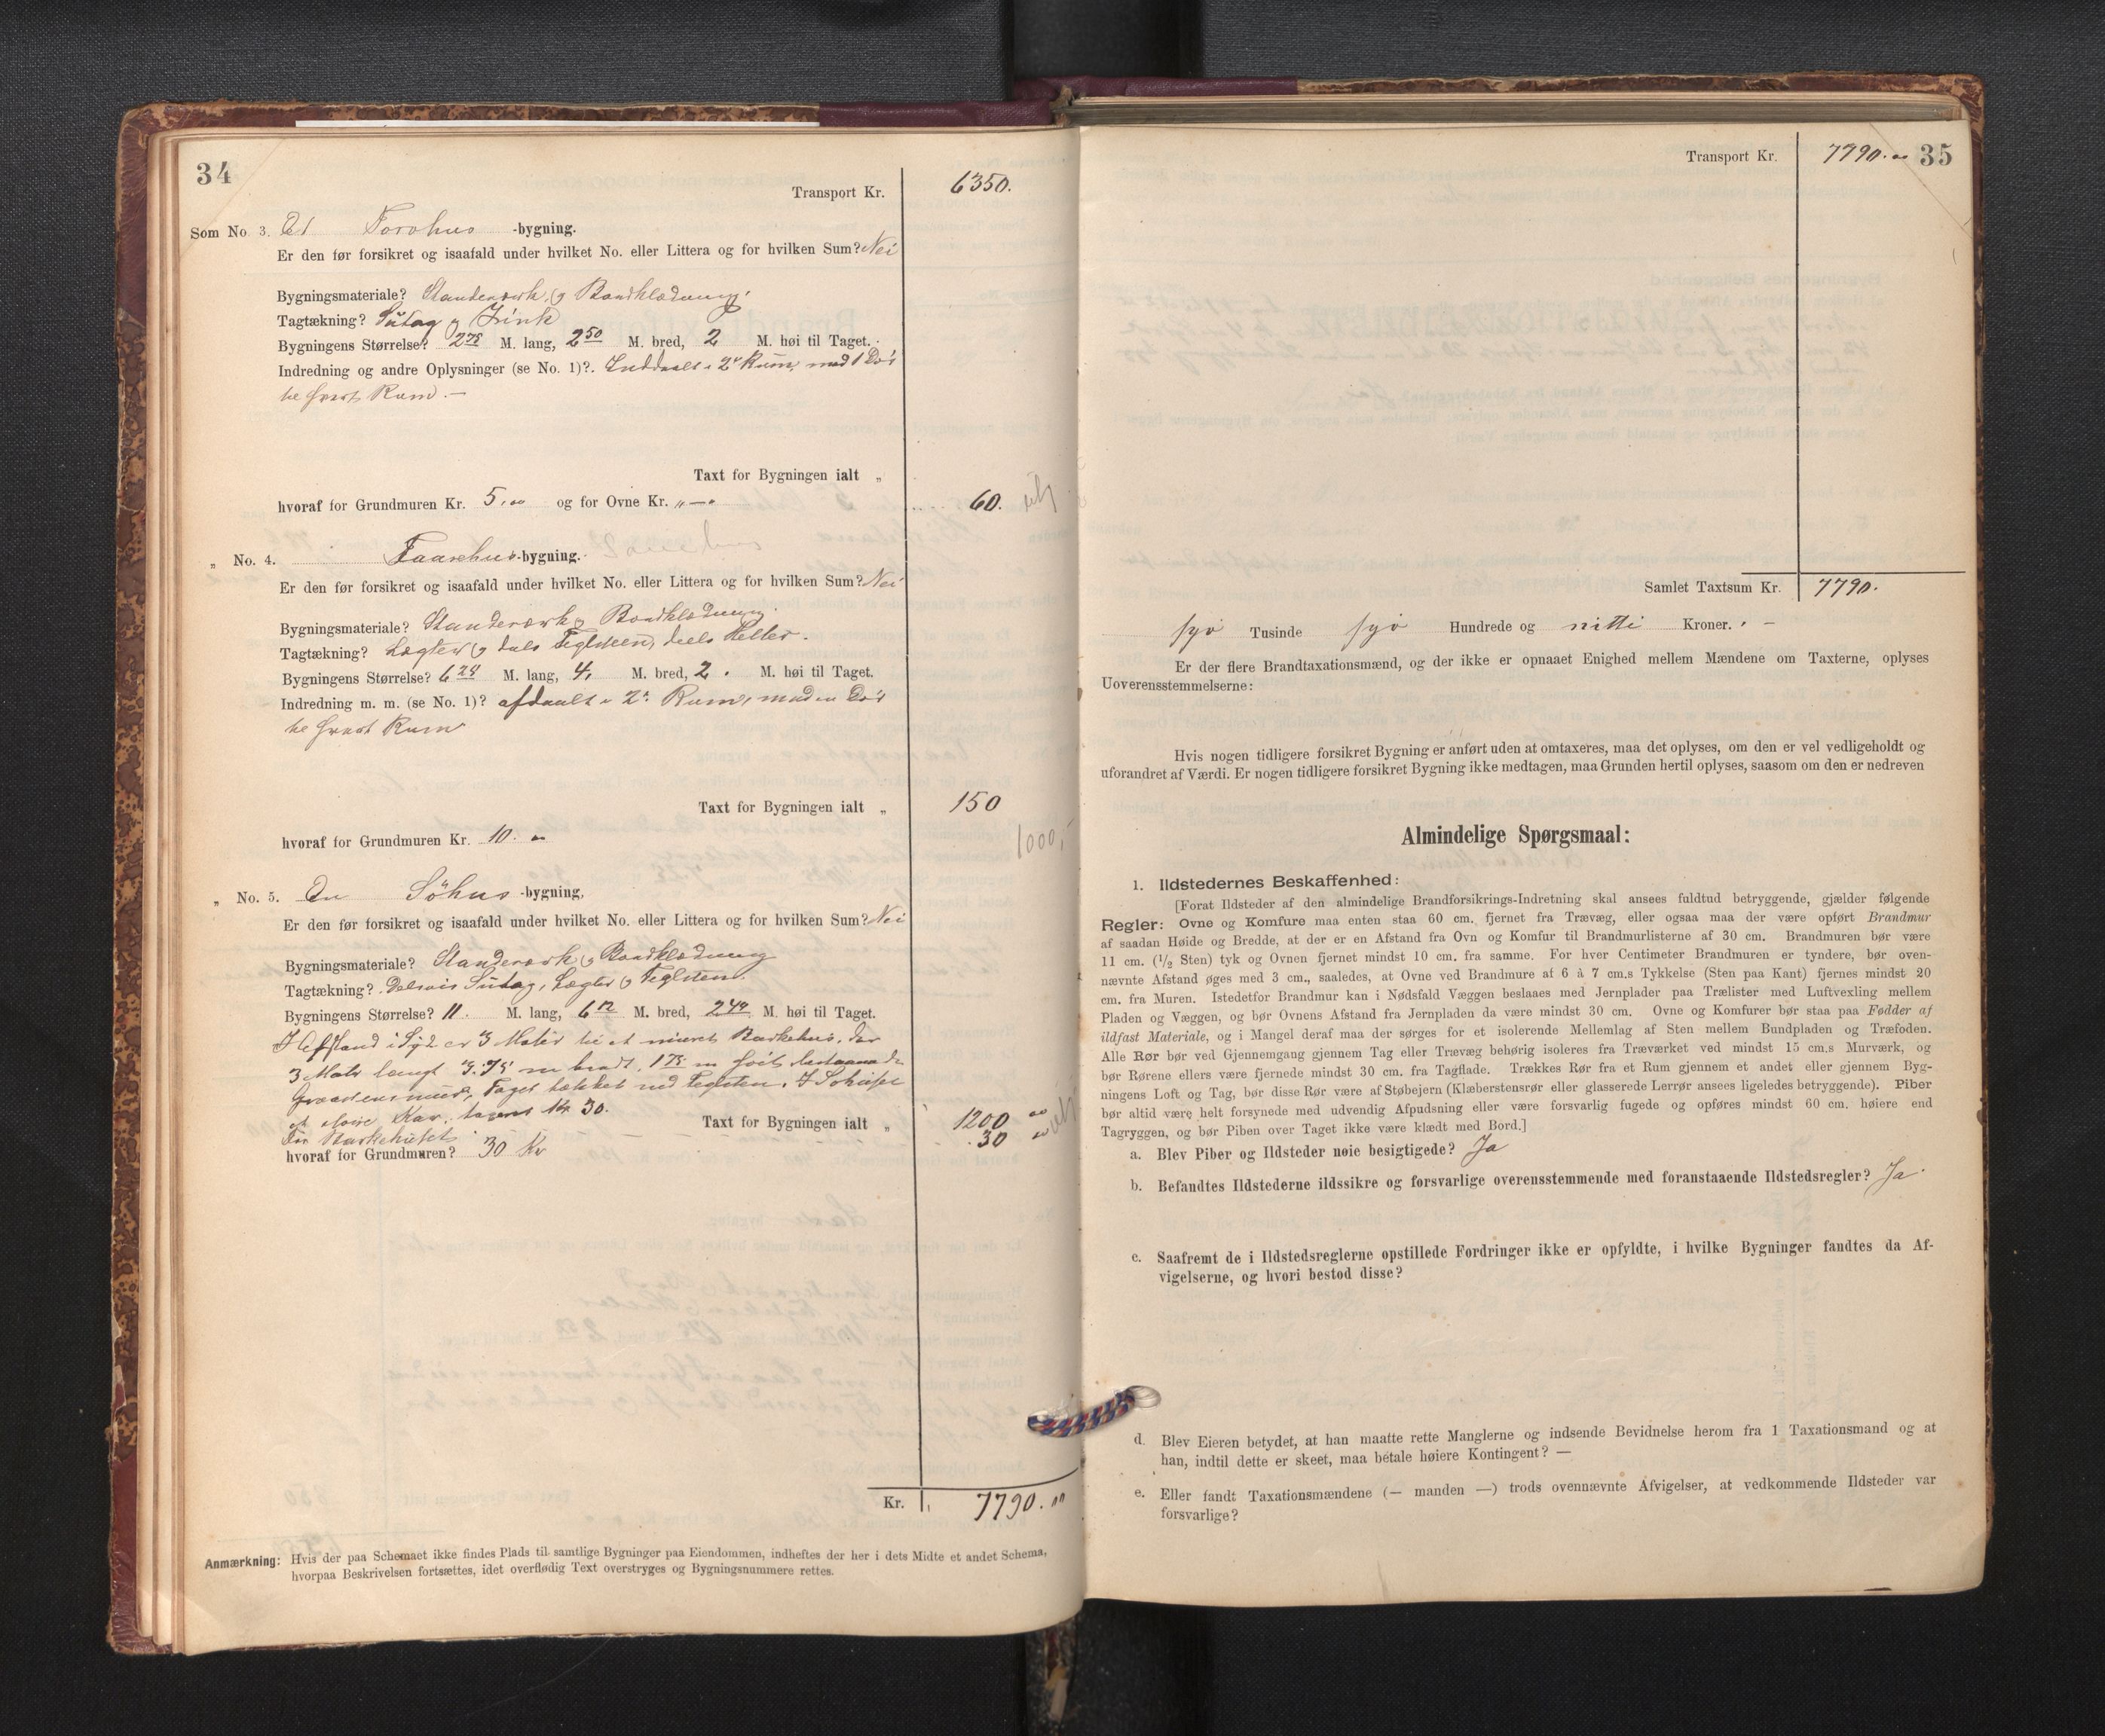 34
Transport Kr. 6350.
Som No. 3. Et Torvhus -bygning.
Er den før forsikret og isaafald under hvilket No. eller Littera og for hvilken Sum? Nei
Bygningsmateriale? Standerverk og Bordklædning.
Tagtækning? Sutag og Zink
Bygningens Størrelse? 2 75 M. lang, 2 50 M. bred, 2 M. høi til Taget.
Indredning og andre Oplysninger (se No. 1)? Inddeelt i 2 Rum, med 1 Dør
til hvert Rum. —
Taxt for Bygningen ialt „
hvoraf for Grundmuren Kr. 5.00 og for Ovne Kr. „—„ 60.
„ No. 4. Faarehus -bygning.
Er den før forsikret og isaafald under hvilket No. eller Littera og for hvilken Sum? Nei
Bygningsmateriale? Standerverk og Bordklædning.
Tagtækning? Lægter og dels Teglsteen, deels Heller.
Bygningens Størrelse? 6 M. lang, 4, M. bred, 2. M. høi til Taget.
Indredning m. m. (se No. 1)? afdeelt i 2 Rum, med en Dør
til hvert Rum
Taxt for Bygningen ialt „ 150
hvoraf for Grundmuren Kr. 10. 1000,
„ No. 5. En Söhus -bygning,
Er den før forsikret og isaafald under hvilket No. eller Littera og for hvilken Sum? Nei
Bygningsmateriale? Standerverk og Bordklædning
Tagtækning? Delsvis Sutag, Lægter og Teglsten.
Bygningens Størrelse? 11. M. lang, 6 M. bred, 2 40 M. høi til Taget.
I Afstand i Syd er 3 Meter til et muret Barkehus, der
3 Meter langt 3.75 m bredt, 1 75 m høit bestaaende
Graastensmur, Taget tækket med Teglsten. I
et Kar, taxeret Kr 30.
Taxt for Bygningen ialt „ 1200
For Barkehuset 30
hvoraf for Grundmuren? 30 Kr
Kr. 7790.00
Anmærkning: Hvis der paa Schemaet ikke findes Plads til samtlige Bygninger paa Eiendommen, indheftes der her i dets Midte et andet Schema,
hvorpaa Beskrivelsen fortsættes, idet overflødig Text overstryges og Bygningsnummere rettes.
Transport Kr. 7790.00 35
Samlet Taxtsum Kr. 7790.
syv Tusinde syv Hundrede og nitti Kroner. —
Er der flere Brandtaxationsmænd, og der ikke er opnaaet Enighed mellem Mændene om Taxterne, oplyses
Uoverensstemmelserne:
Hvis nogen tidligere forsikret Bygning er anført uden at omtaxeres, maa det oplyses, om den er vel vedligeholdt og
uforandret af Værdi. Er nogen tidligere forsikret Bygning ikke medtagen, maa Grunden hertil oplyses, saasom om den er nedreven
Almindelige Spørgsmaal:
1. Ildstedernes Beskaffenhed:
[Forat Ildsteder af den almindelige Brandforsikrings-Indretning skal ansees fuldtud betryggende, gjælder følgende
Regler: Ovne og Komfure maa enten staa 60 cm. fjernet fra Trævæg, eller ogsaa maa der være opført Brandmur
af saadan Høide og Bredde, at der er en Afstand fra Ovn og Komfur til Brandmurlisterne af 30 cm. Brandmuren bør være
11 cm. (1/2 Sten) tyk og Ovnen fjernet mindst 10 cm. fra samme. For hver Centimeter Brandmuren er tyndere, bør oven-
nævnte Afstand øges med 3 cm., saaledes, at Ovne ved Brandmure af 6 à 7 cm.s Tykkelse (Sten paa Kant) fjernes mindst 20
cm. fra Muren. Istedetfor Brandmur kan i Nødsfald Væggen beslaaes med Jernplader paa Trælister med Luftvexling mellem
Pladen og Væggen, og bør Ovnens Afstand fra Jernpladen da være mindst 30 cm. Ovne og Komfurer bør staa paa Fødder af
ildfast Materiale, og i Mangel deraf maa der sørges for et isolerende Mellemlag af Sten mellem Bundpladen og Træfoden.
Alle Rør bør ved Gjennemgang gjennem Tag eller Trævæg behørig isoleres fra Træværket ved mindst 15 cm.s Murværk, og
bør Rørene ellers være fjernede mindst 30 cm. fra Tagflade. Trækkes Rør fra et Rum gjennem et andet eller gjennem Byg-
ningens Loft og Tag, bør disse Rør være af Støbejern (Klæberstensrør eller glasserede Lerrør ansees ligeledes betryggende). Piber
bør altid være helt forsynede med udvendig Afpudsning eller være forsvarlig fugede og opføres mindst 60 cm. høiere end
Tagryggen, og bør Piben over Taget ikke være klædt med Bord.]
a. Blev Piber og Ildsteder nøie besigtigede? Ja
b. Befandtes Ildstederne ildssikre og forsvarlige overensstemmende med foranstaaende Ildstedsregler? Ja
c. Saafremt de i Ildstedsreglerne opstillede Fordringer ikke er opfyldte, i hvilke Bygninger fandtes da Af-
vigelserne, og hvori bestod disse?
d. Blev Eieren betydet, at han maatte rette Manglerne og indsende Bevidnelse herom fra 1 Taxationsmand og at
han, indtil dette er skeet, maa betale høiere Kontingent? —
e. Eller fandt Taxationsmændene (— manden —) trods ovennævnte Afvigelser, at vedkommende Ildsteder var
forsvarlige?